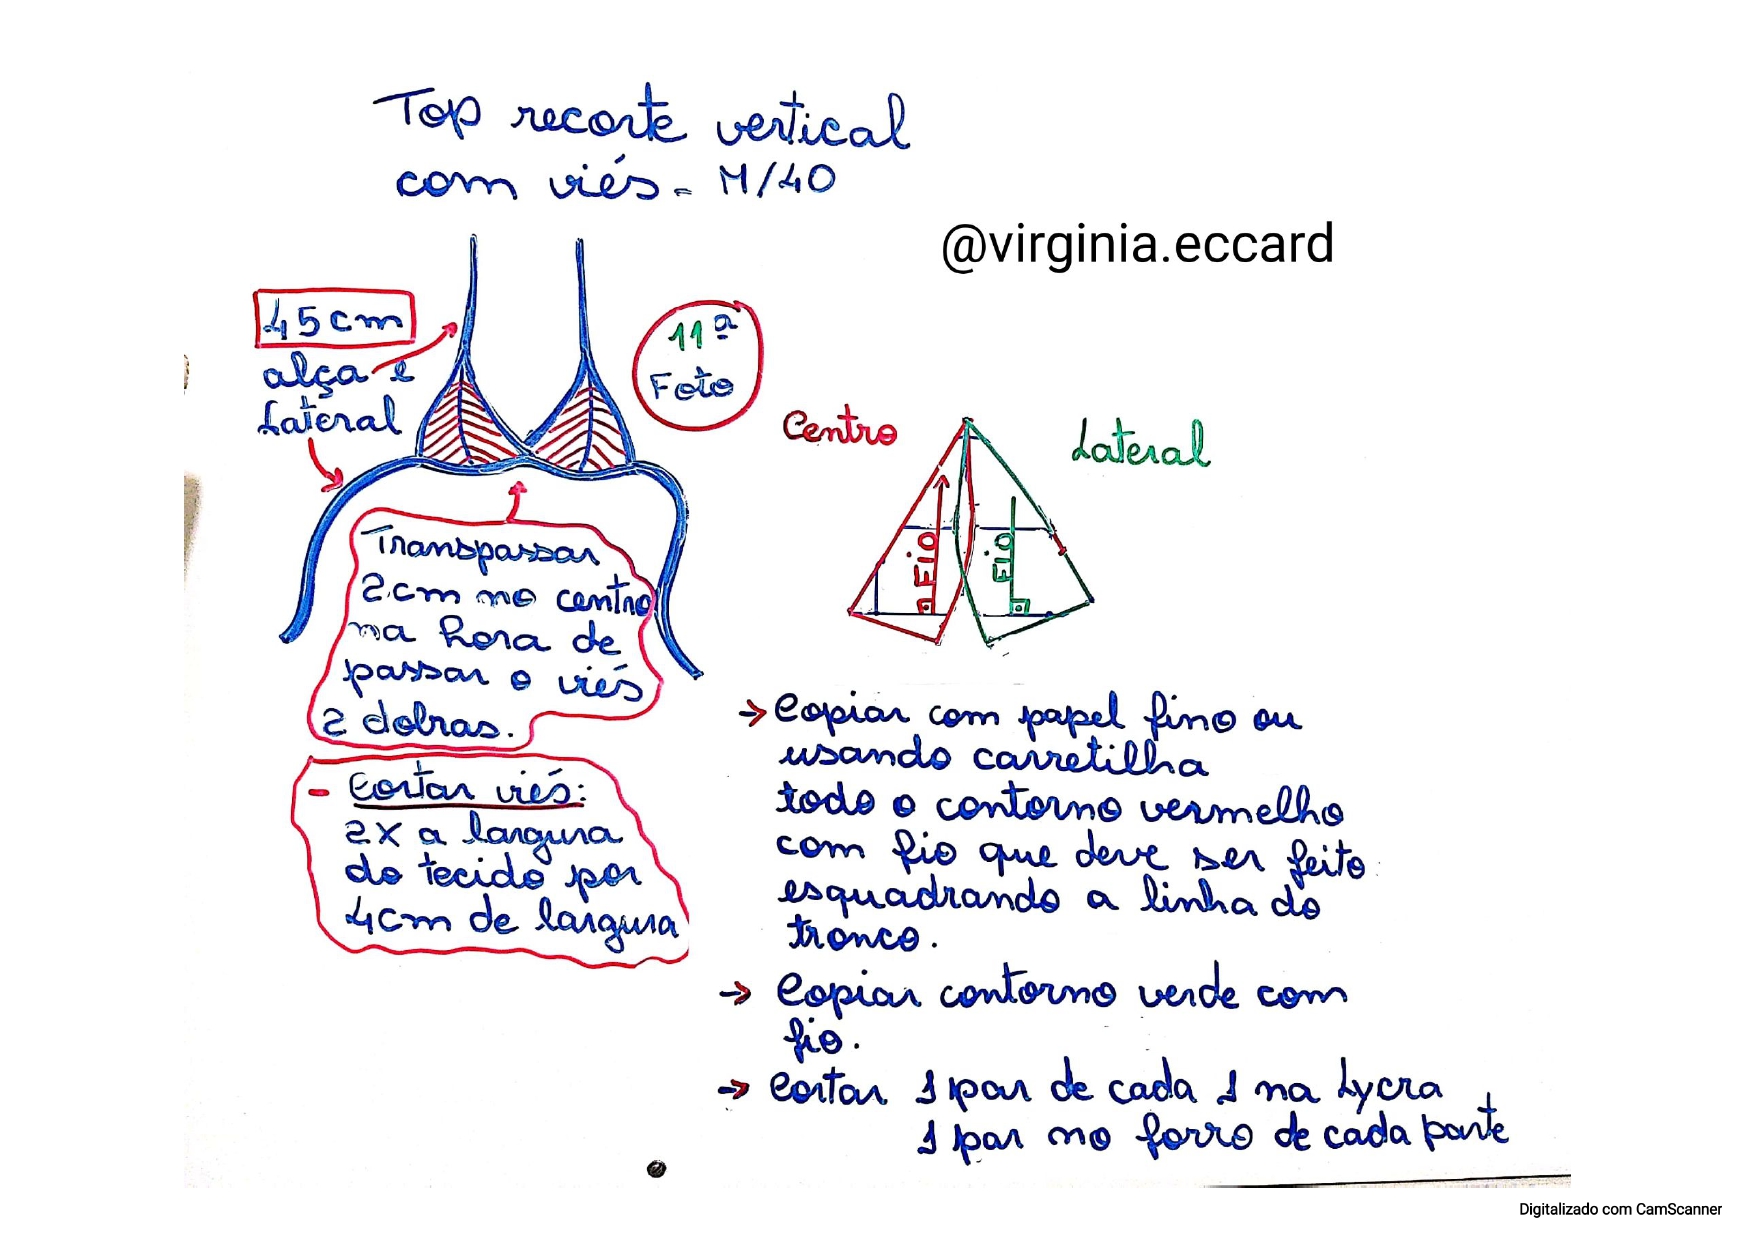 Top recorte vertical
com viés - M/40
@virginia.eccard
45cm
alça e
Lateral
11ª
Foto
Centro
Lateral
Fio
Fio
Transpassar
2cm no centro
na hora de
passar o viés
2 dobras.
- Cortar viés:
2X a largura
do tecido por
4cm de largura
→ Copiar com papel fino ou
usando carretilha
todo o contorno vermelho
com fio que deve ser feito
esquadrando a linha do
tronco.
→ Copiar contorno verde com
fio.
→ Cortar 1 par de cada 1 na Lycra
1 par no forro de cada parte
Digitalizado com CamScanner